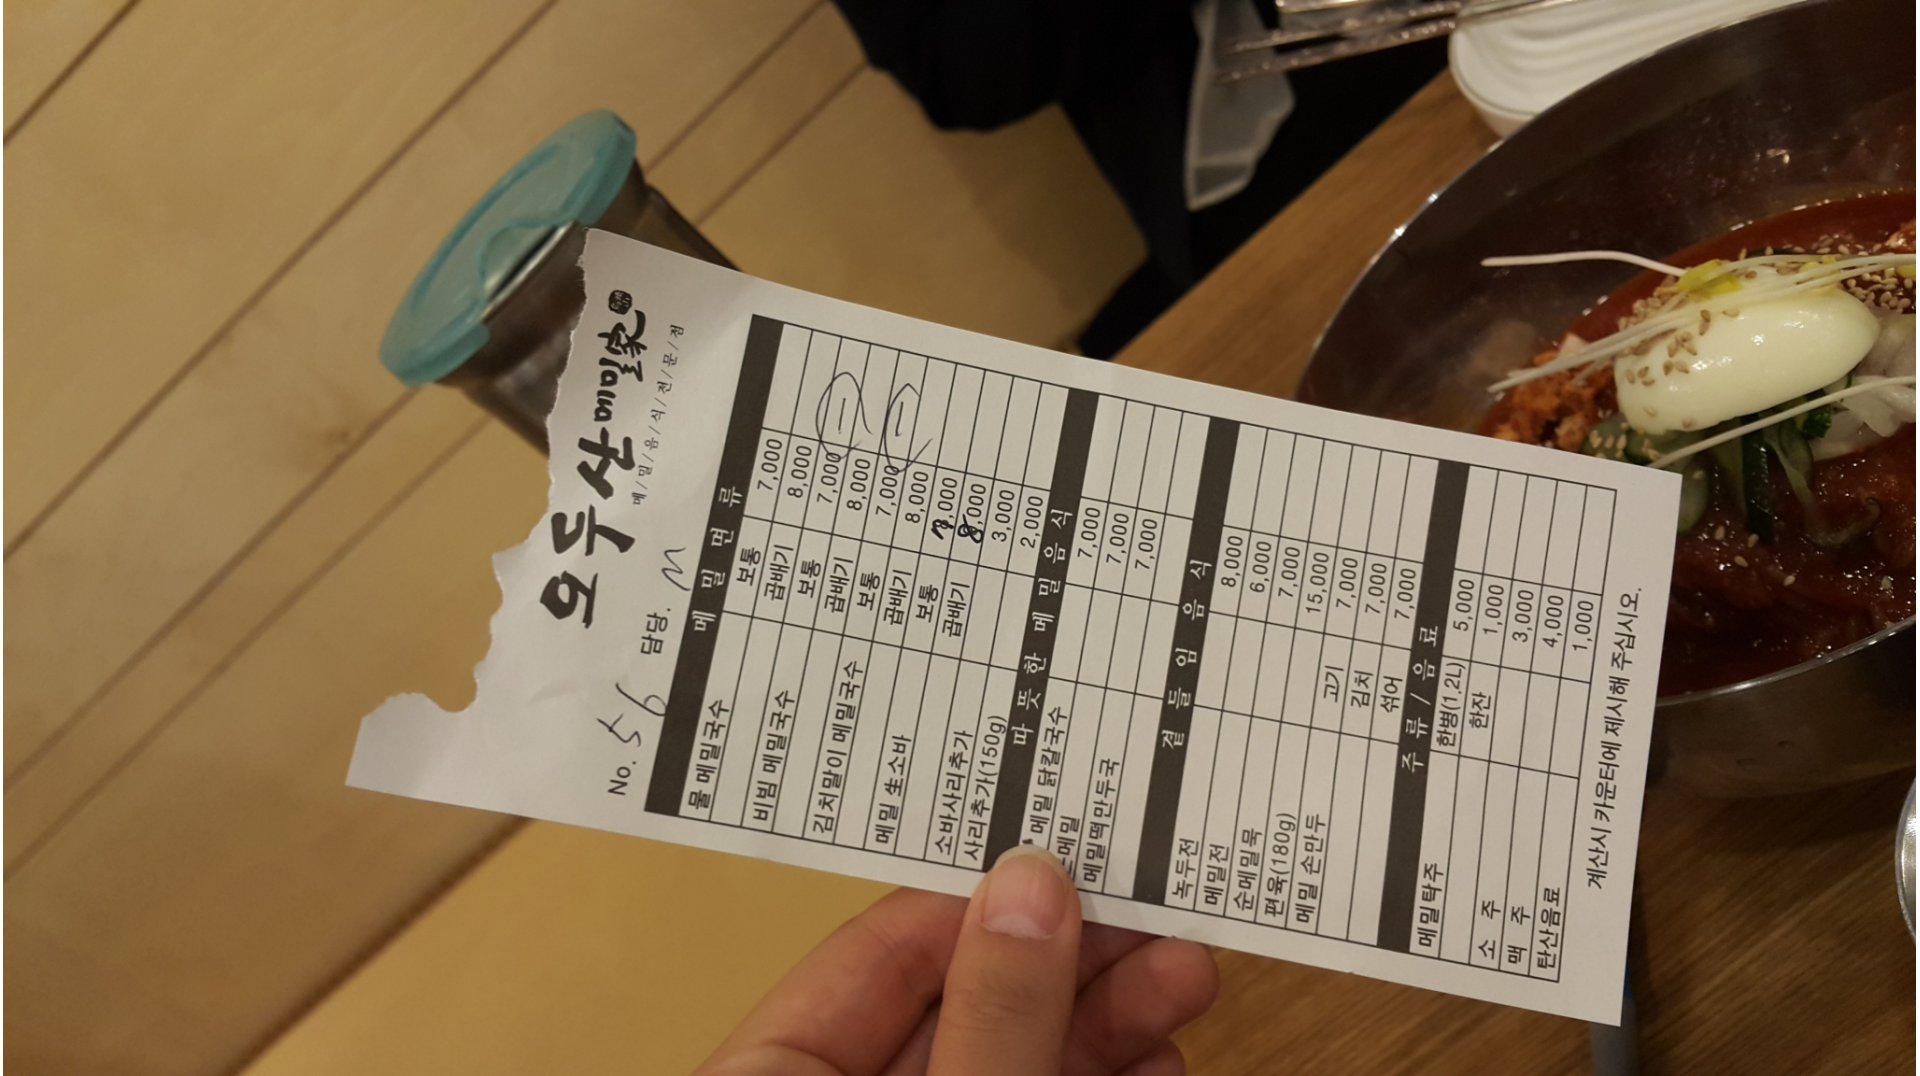 오두산메밀家
메/밀/음/식/전/문/점
No. 56 담당. M
메 밀 면 류
물 메밀국수 보통 7,000
곱배기 8,000
비빔 메밀국수 보통 7,000 一
곱배기 8,000
김치말이 메밀국수 보통 7,000 一
곱배기 8,000
메밀 生소바 보통
곱배기 8,000
소바사리추가 3,000
사리추가(150g) 2,000
따 뜻 한 메 밀 음 식
메밀 닭칼국수 7,000
메밀 7,000
메밀떡만두국 7,000
곁 들 임 음 식
녹두전 8,000
메밀전 6,000
순메밀묵 7,000
편육(180g) 15,000
메밀 손만두 고기 7,000
김치 7,000
섞어 7,000
주 류 / 음 료
메밀탁주 한병(1,2L) 5,000
한잔 1,000
소 주 3,000
맥 주 4,000
탄산음료 1,000
계산시 카운터에 제시해 주십시오.